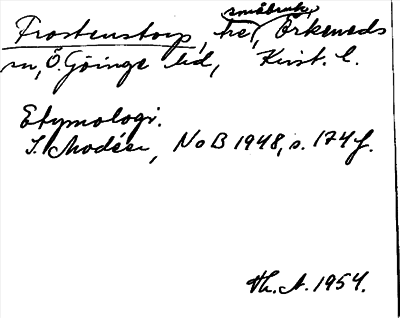 småbruk,
Frostenstorp, hé, Örkeneds
sn, Ö. Göinge hd, Krist. l.
Etymologi.
I. Modéer, NoB 1948, s. 174 f.
Th. A. 1954.